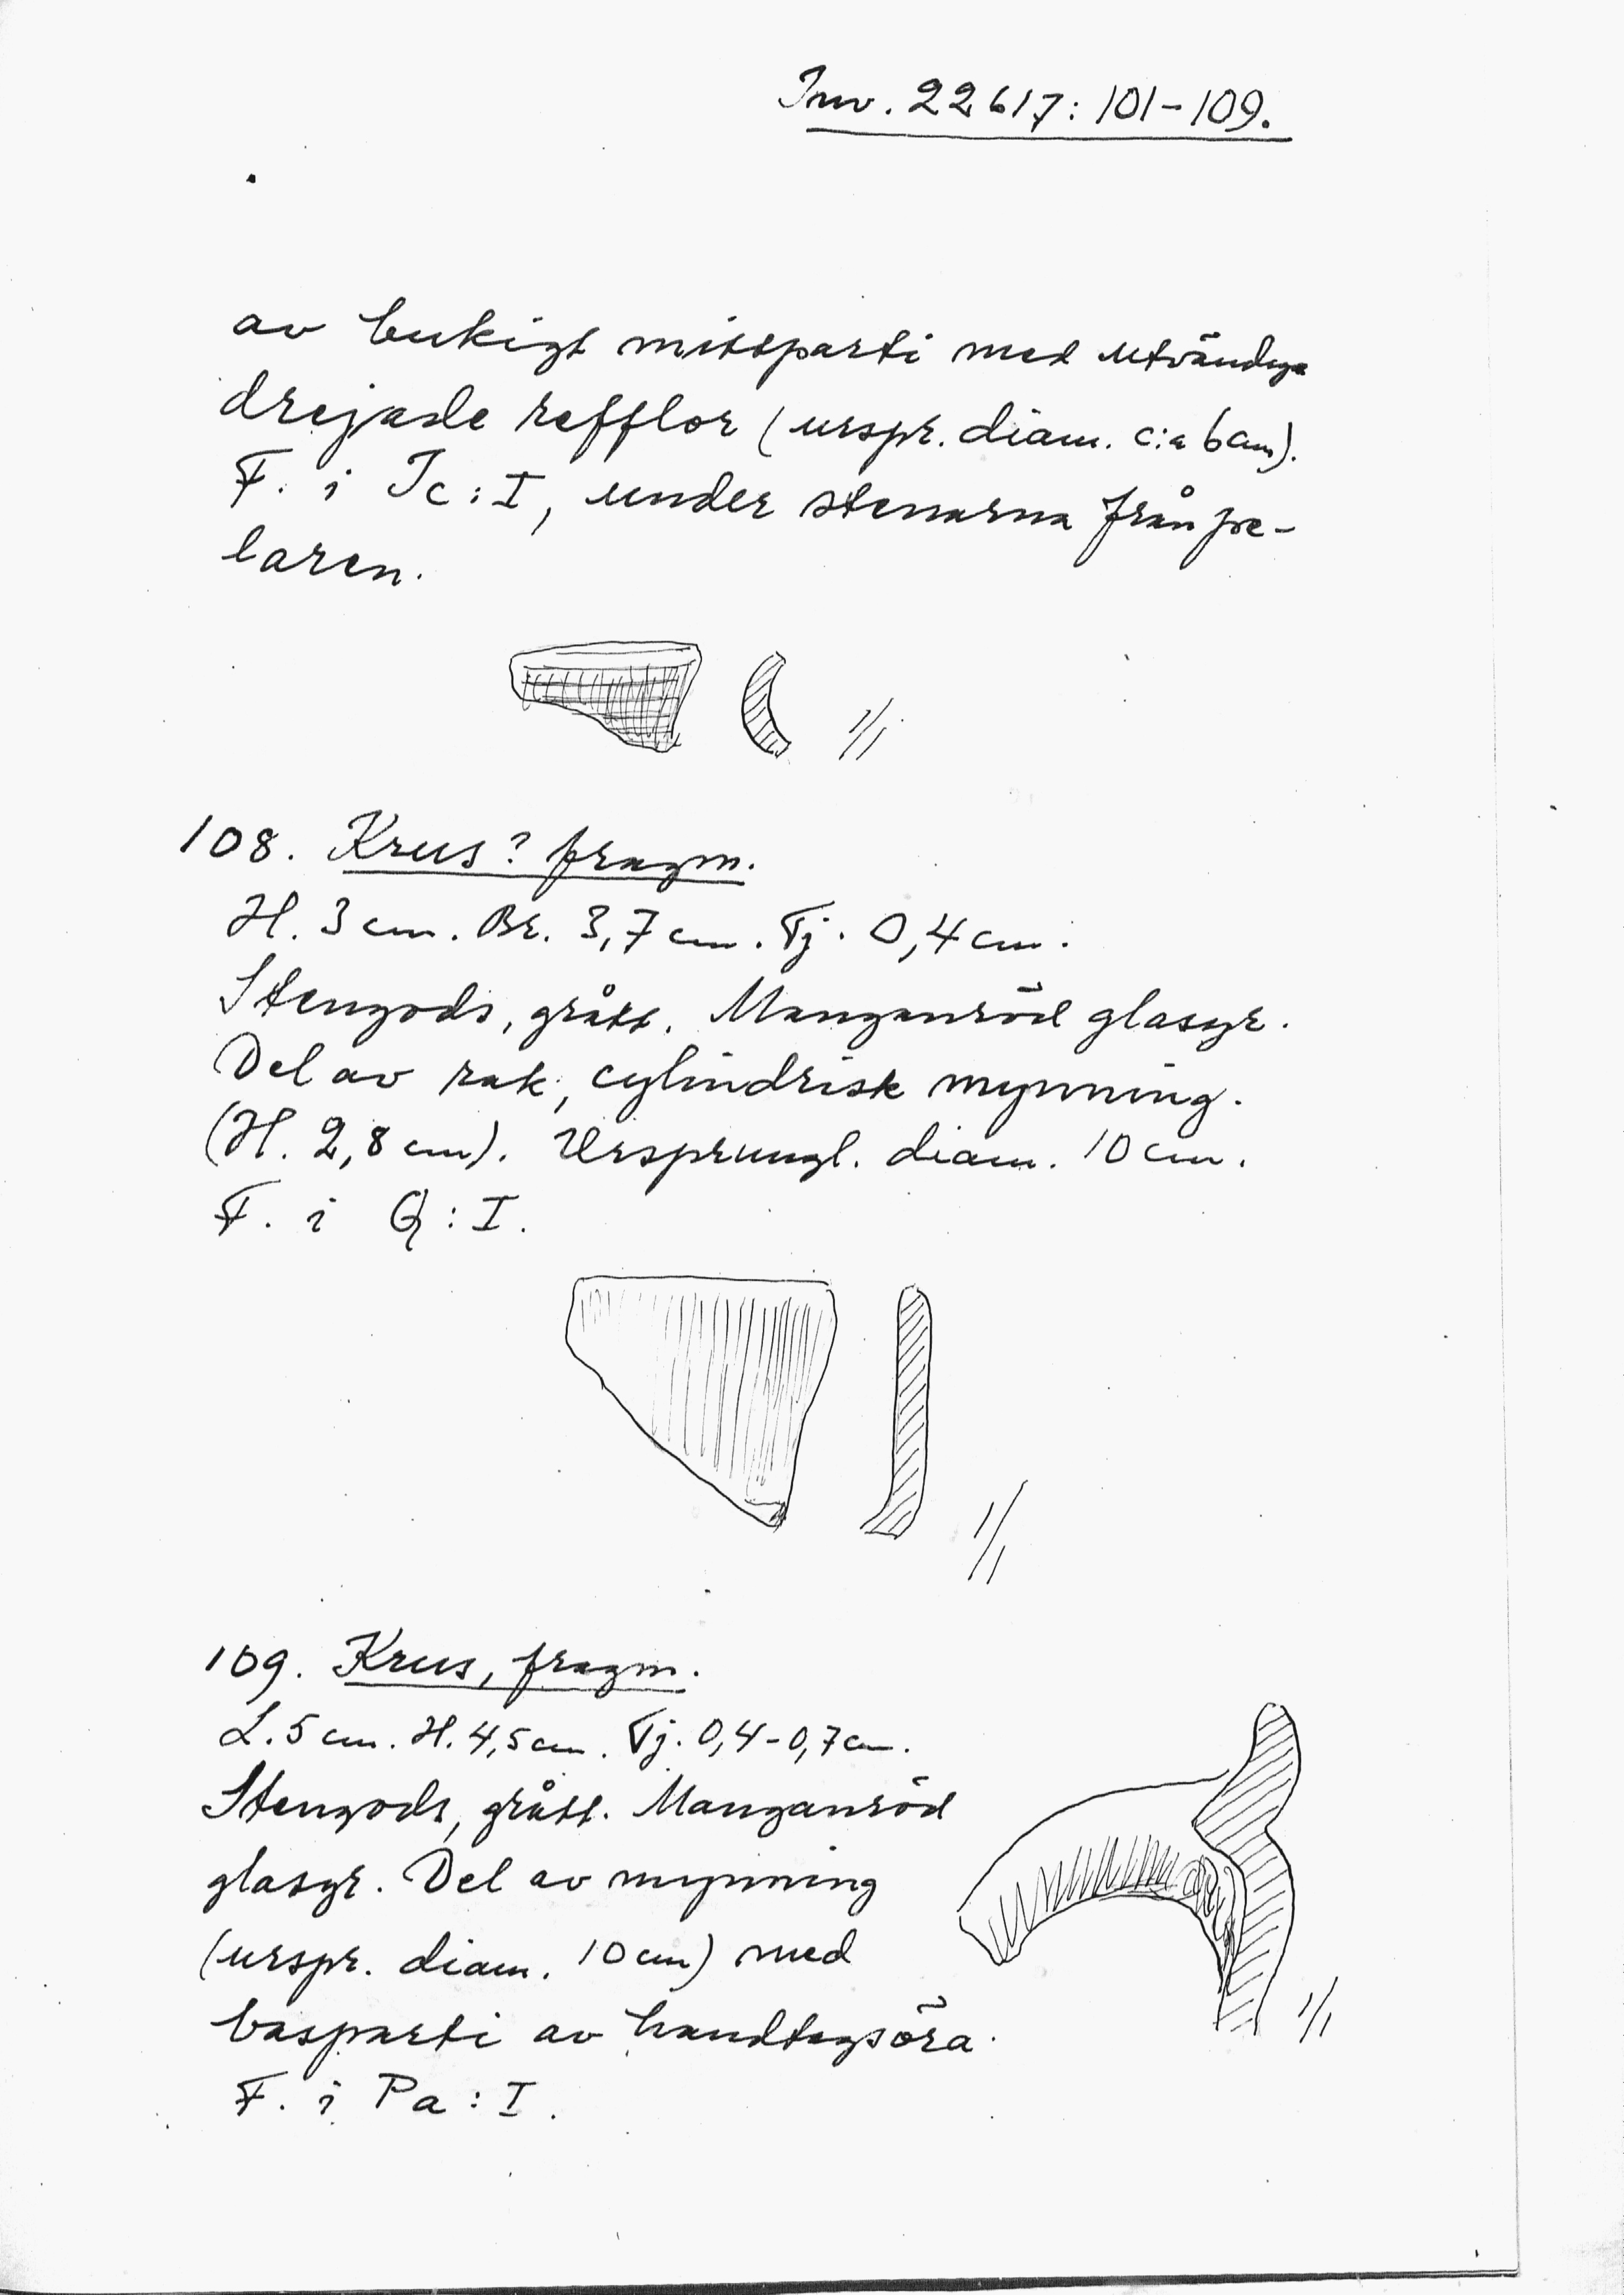 Inv. 22617: 101-109.
av bukigt mittparti med utvändiga
drejade refflor (urspr. diam. c:a 6 cm).
F. i Jc: I, under stenarna från pe-
laren.
1/1
108. Krus? fragm.
H. 3 cm. Br. 3,7 cm. Tj. 0,4 cm.
Stengods, grått. Manganröd glasyr.
Del av rak, cylindrisk mynning.
(H. 2,8 cm). Ursprungl. diam. 10 cm.
F. i Q: I.
1/1
109. Krus, fragm.
L. 5 cm. H. 4,5 cm. Tj. 0,4-0,7 cm.
Stengods, grått. Manganröd
glasyr. Del av mynning
(urspr. diam. 10 cm) med
basparti av handtagsöra.
1/1
F. i Pa: I.